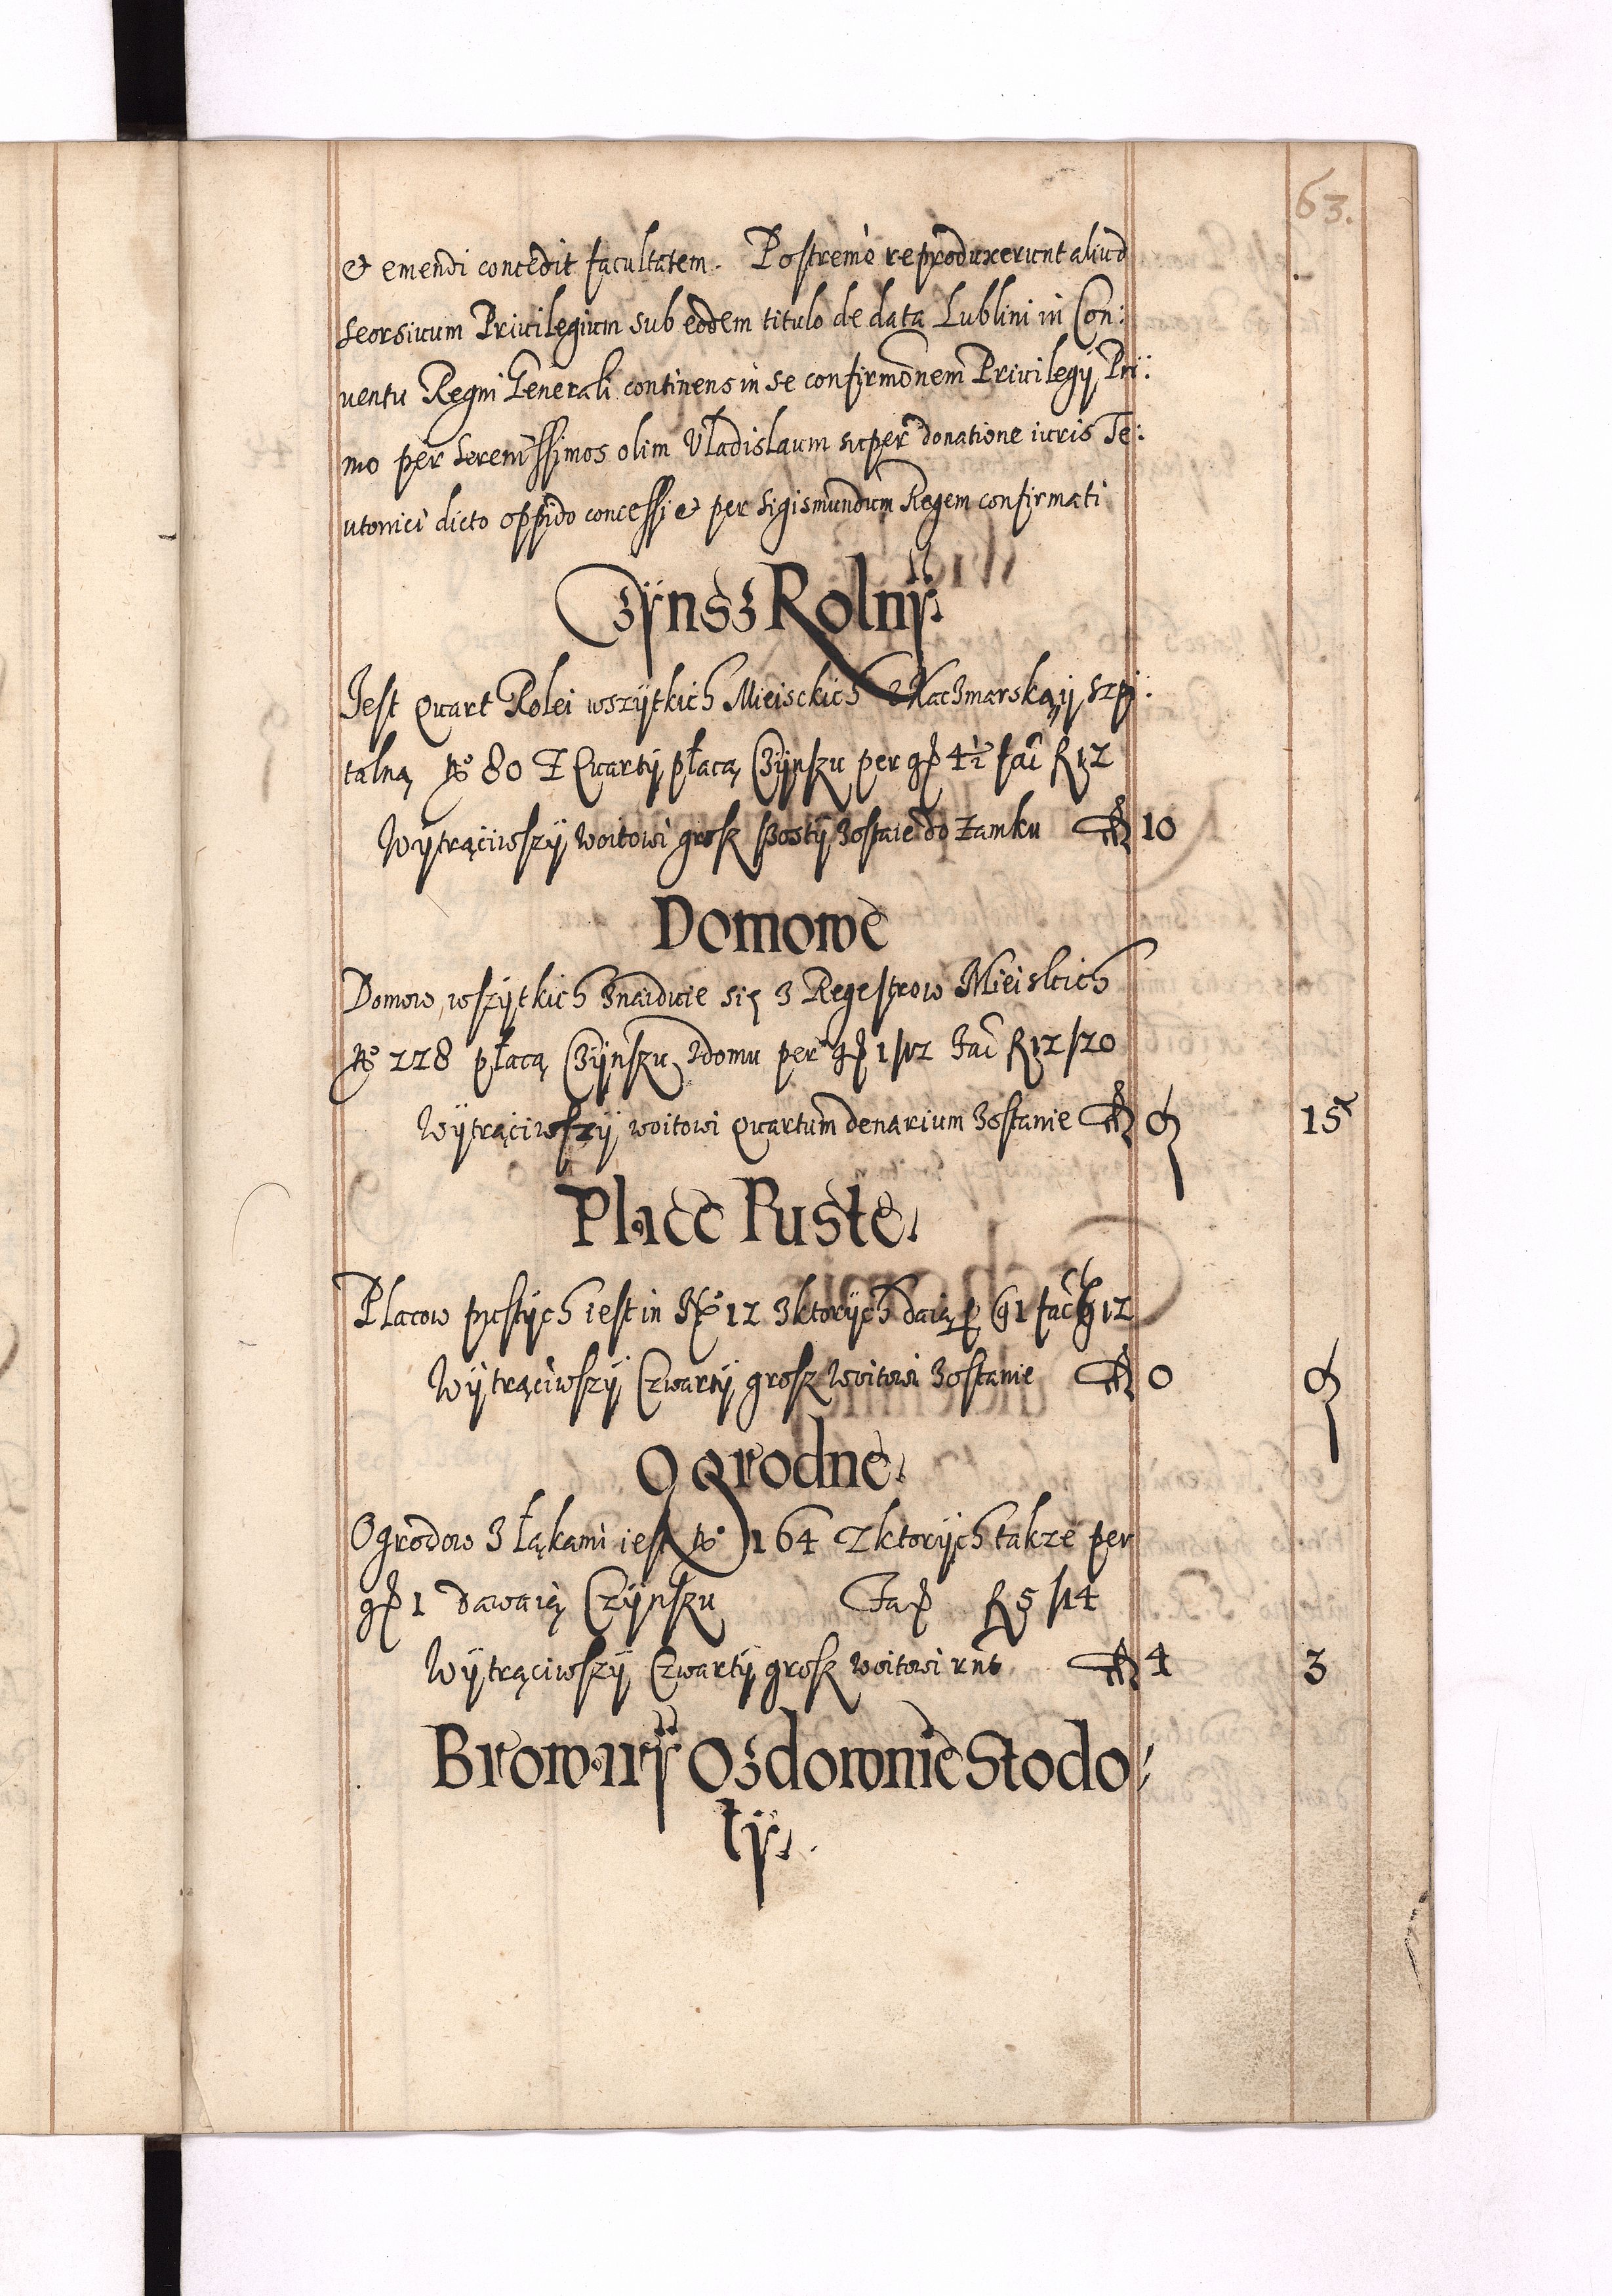 63.
& emendi concedit facultatem. Postremò reproduxerunt aliud
seorsiuum Priuilegium sub eodem titulo de data Lublini in Con:
uentu Regni Generali continens in se confirmõnem Priuilegÿ Pri:
mo per Serenissimos olim Vladislaum super donatione iuris Te:
utonici dicto oppido concessi & per Sigismundum Regem confirmati
Czÿnsz Rolnÿ.
Jest Quart Rolei wszÿtkich Mieisckich z Kaczmarską ÿ szpi:
talną No 80 Z Quartÿ płacą Czÿnszu per gr 4½ fac̃ fl 12
Wÿtrąciwszÿ woitowi grosz szostÿ zostaie do Zamku fl 10
Domowe
Domow wszÿtkich znaiduie się z Regestrow Mieiskich
No 228 płacą Czÿnszu z domu per gr 1/12 fac̃ fl 12/20
Wÿtrąciwszÿ woitowi quartum denarium zostanie fl 9 15
Place Puste.
Placow pustÿch iest in No 12 z ktorÿch daią per g 1 fac g 12
Wÿtrąciwszÿ Czwartÿ grosz woitowi zostanie fl 0 9
Ogrodne.
Ogrodow z łąkami iest No 164 z ktorÿch takze per
gr 1 dawaią Czÿnszu Fac fl 5/14
Wÿtrąciwszÿ Czwartÿ grosz woitowi rñt fl 4 3
Browarÿ Ozdownie Stodo
łÿ.